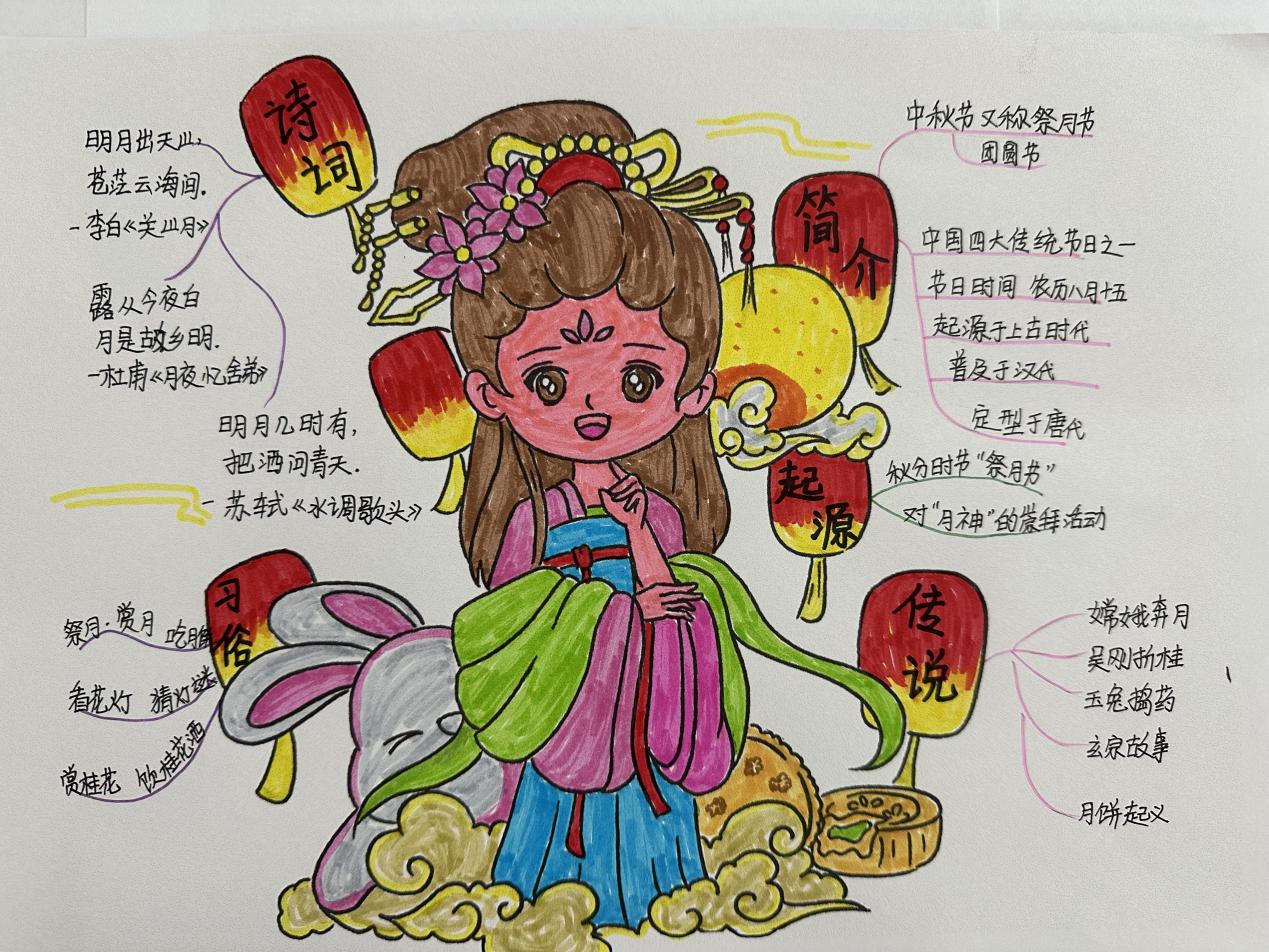 诗
词
明月出天山,
苍茫云海间.
-李白《关山月》
露从今夜白
月是故乡明.
-杜甫《月夜忆舍弟》
明月几时有,
把酒问青天.
-苏轼《水调歌头》
习
俗
祭月·赏月 吃月
看花灯 猜灯谜
赏桂花 饮桂花酒
简
介
中秋节又称祭月节
团圆节
中国四大传统节日之一
节日时间 农历八月十五
起源于上古时代
普及于汉代
定型于唐代
起
源
秋分时节"祭月节"
对"月神"的崇拜活动
传
说
嫦娥奔月
吴刚折桂
玉兔捣药
玄宗故事
月饼起义